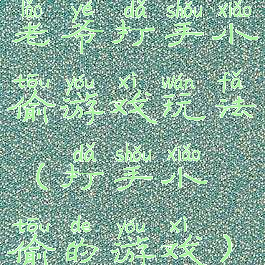 lǎo yé dǎ shǒu xiǎo
老爷打手小
tōu yóu xì wán fǎ
偷游戏玩法
dǎ shǒu xiǎo
(打手小
tōu de yóu xì
偷的游戏)